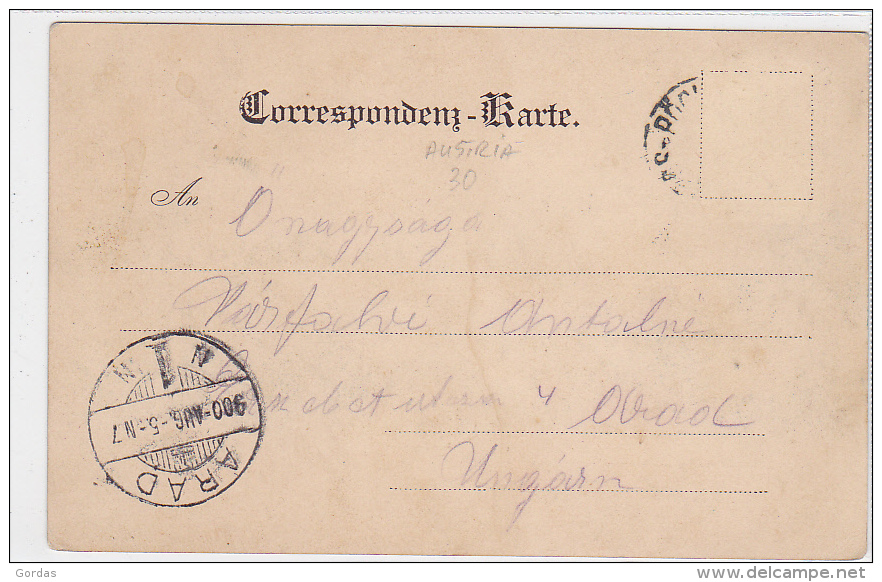 Correspondenz-Karte.
AUSTRIA
30
An Őnagysága
Várfalvi Antalné
utca 4 Arad
Ungárn
900-AUG.-5.-N 7
ARAD
Gordas
delcampe.net